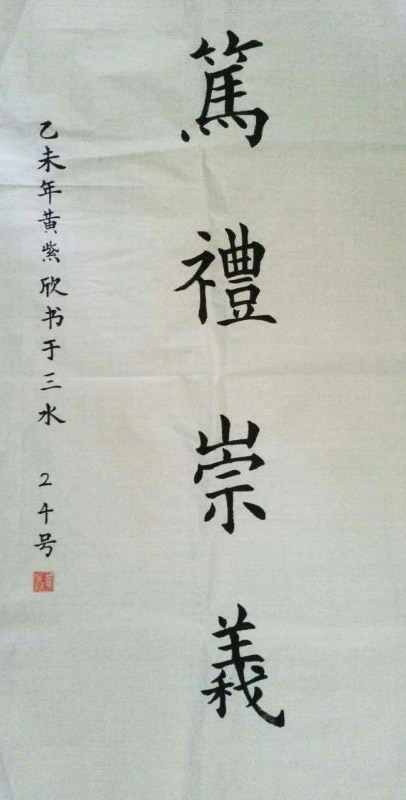 篤禮崇義
乙未年黄紫欣书于三水 24号